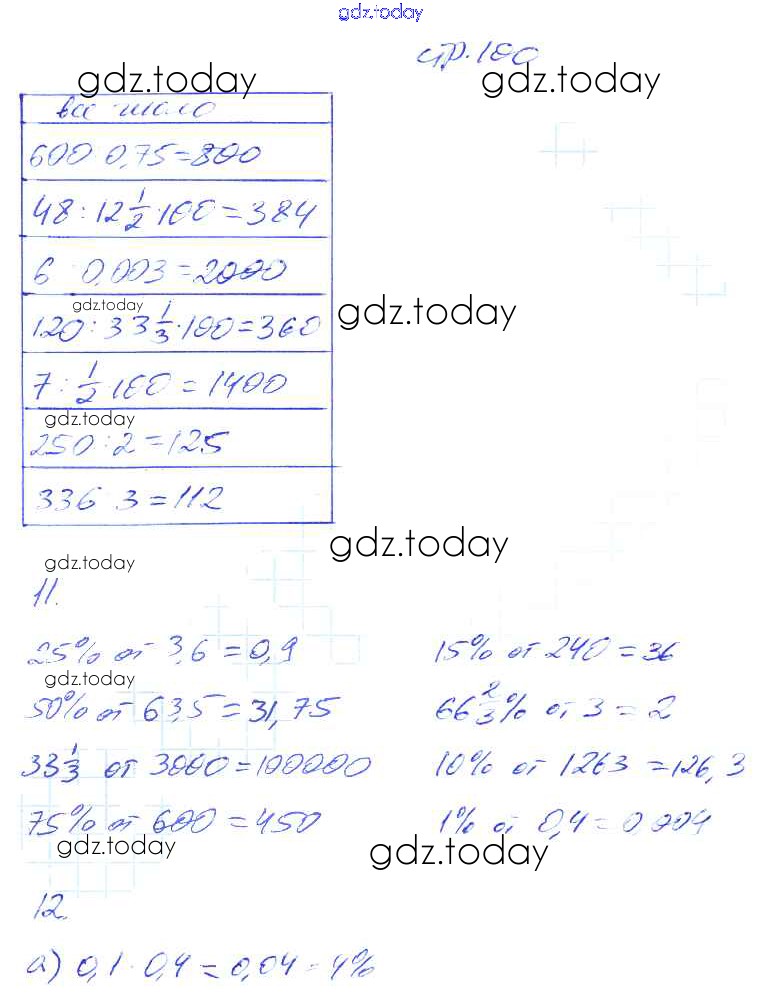 gdz.today
стр. 100
gdz.today gdz.today
все число
600 0,75=800
48:12 1/2·100=384
6 0,003=2000
gdz.today gdz.today
120:33 1/3·100=360
7:1/2·100=1400
gdz.today
250:2=125
336 3=112
gdz.today
gdz.today
11.
25% от 3,6=0,9 15% от 240=36
gdz.today
50% от 63,5=31,75 66 2/3% от 3=2
33 1/3 от 3000=100000 10% от 1263=126,3
75% от 600=450 1% от 0,4=0,004
gdz.today gdz.today
12.
а) 0,1·0,4=0,04=4%